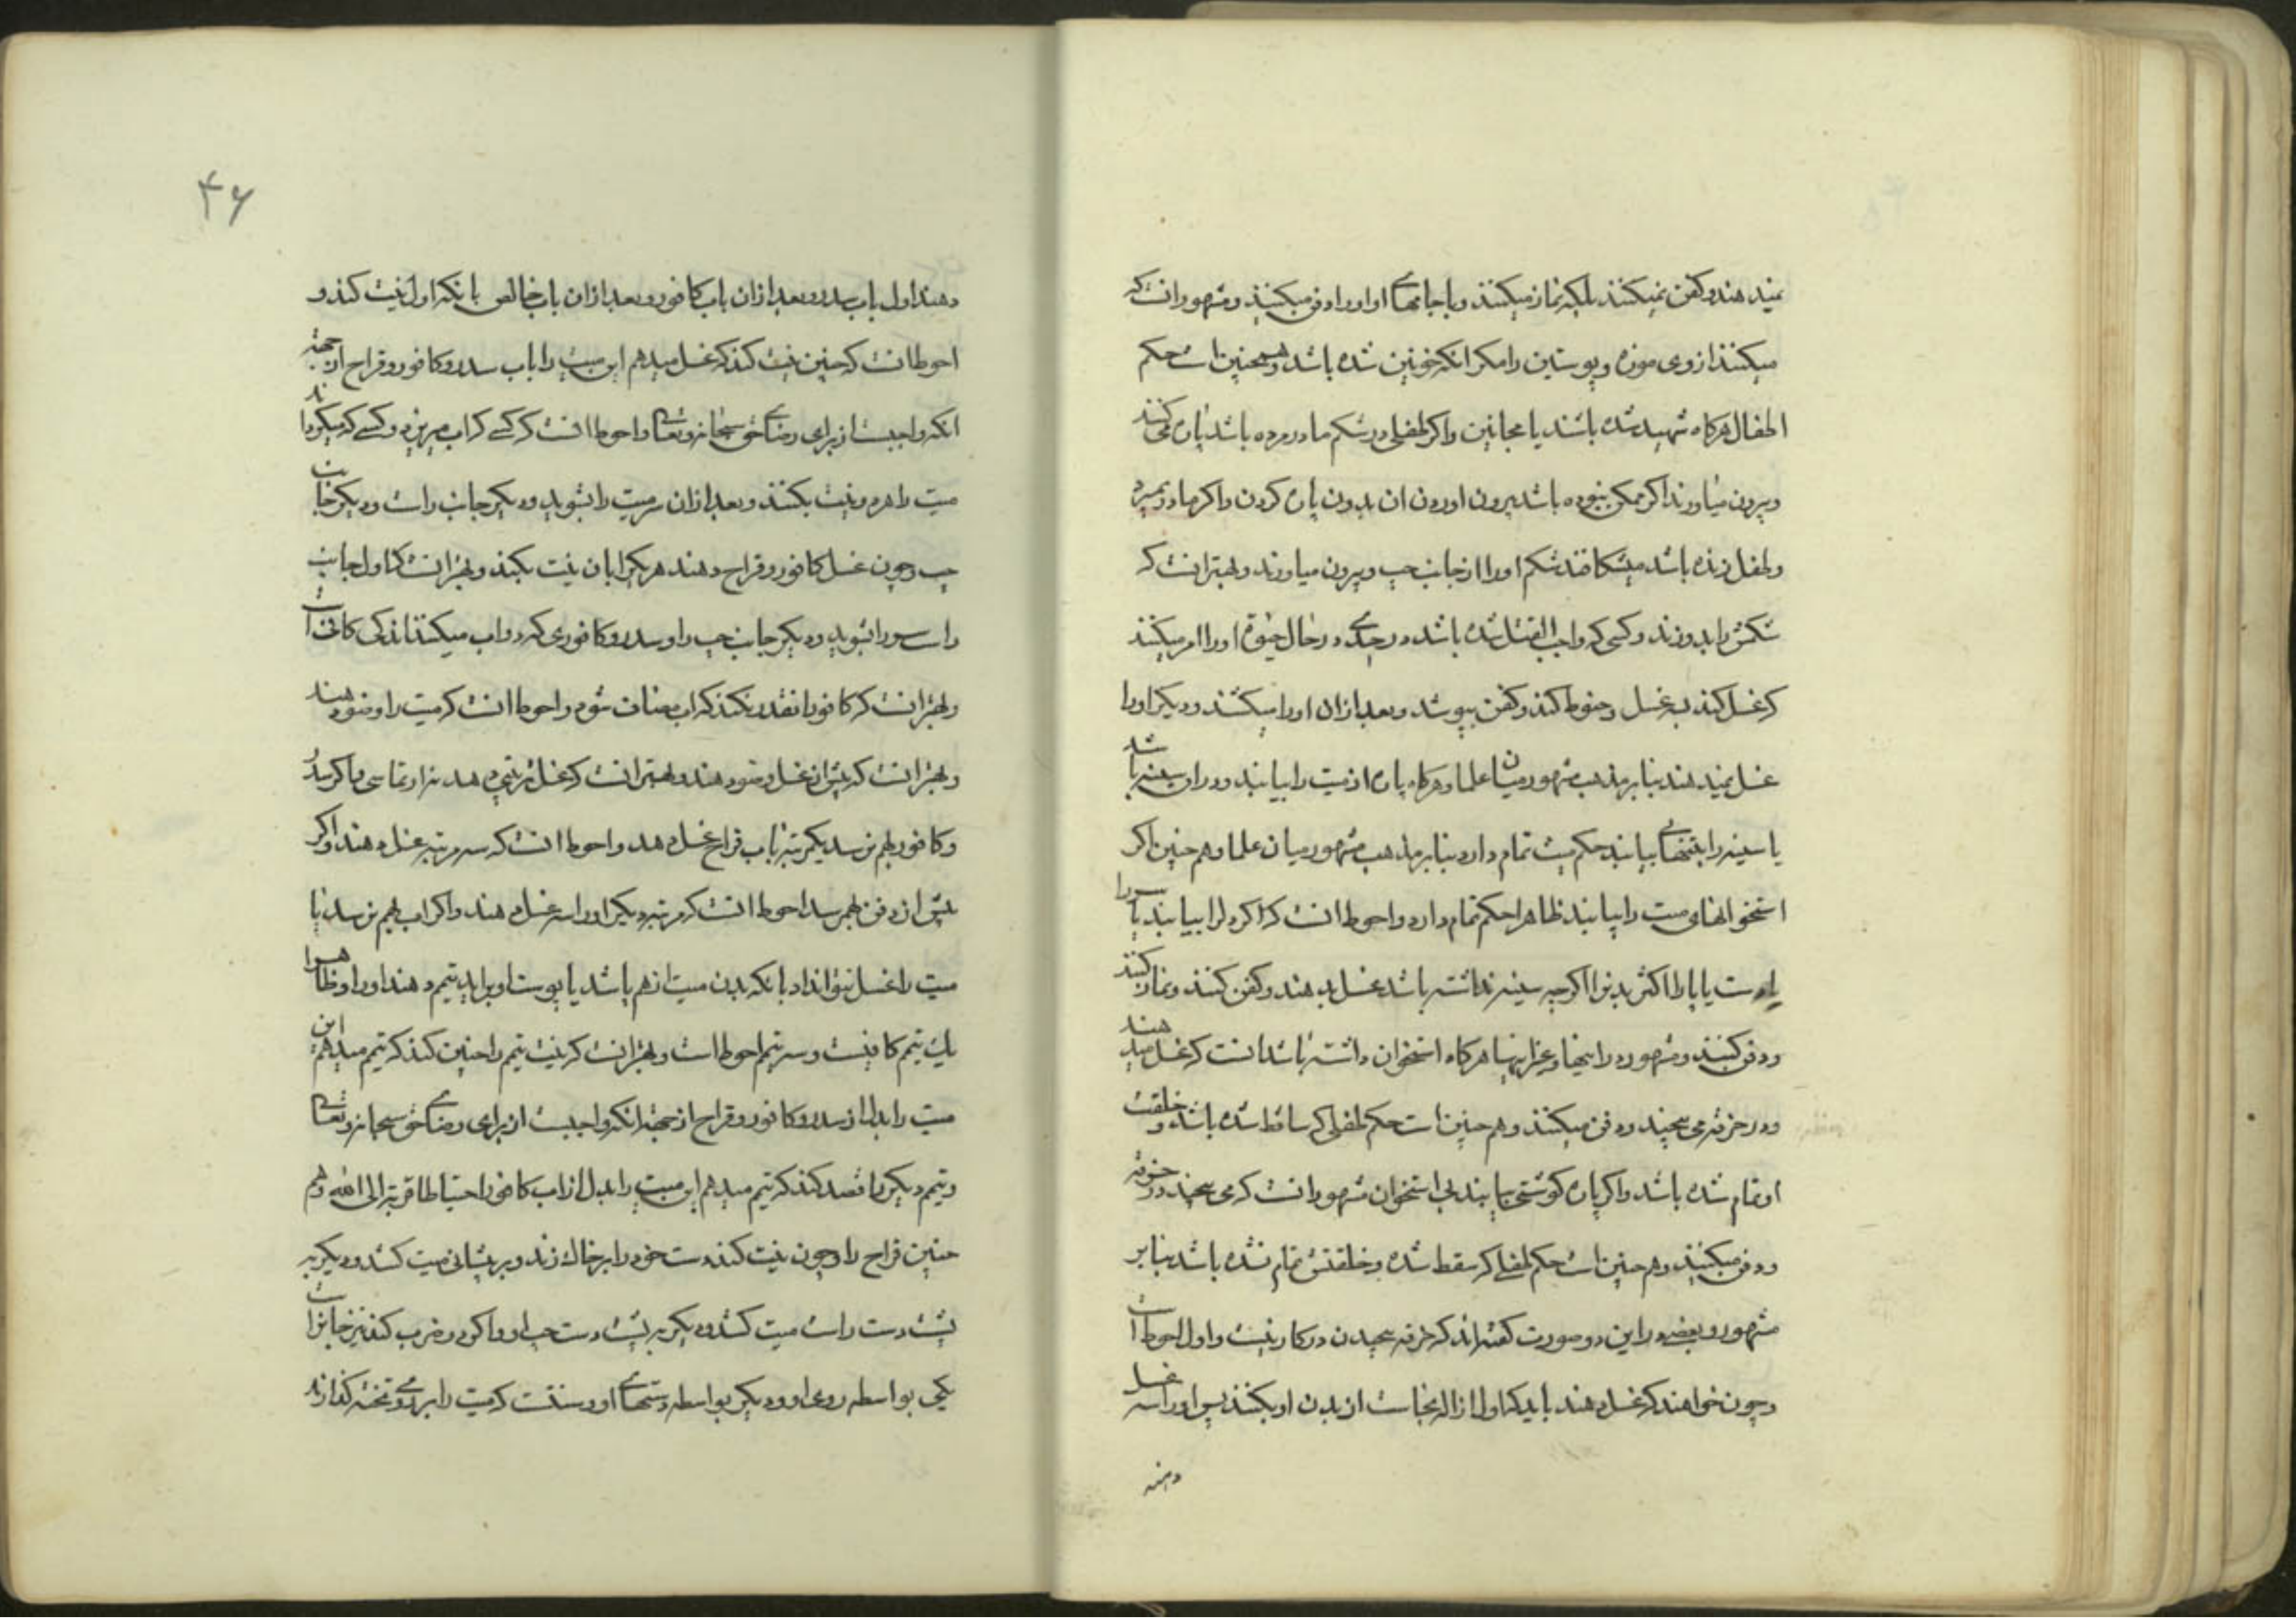 نمیدهند و کفن نمیکنند بلکه نماز میکنند و با جامهای او اورا دفن میکنند و مشهور انست که
میکنند از وی موزه و پوستین را مکر انکه خونین شده باشد و همچنین است حکم
اطفال هرکاه شهید شده باشند یا مجانین و اکر طفلی در شکم مادر مرده باشد پاره می کنند
و بیرون میاورند اکر ممکن نبوده باشد بیرون اوردن ان بدون پاره کردن و اکر مادر بمیرد
و طفل زنده باشد میشکافند شکم اورا از جانب چپ و بیرون میاورند و بهتر انست که
شکمش را بدوزند و کسی که واجب القتل شده باشد در حدی در حال حیوة اورا امر میکنند
که غسل کند سه غسل و حنوط کند و کفن بپوشد و بعد ازان اورا میکشند و دیکر اورا
غسل نمیدهند بنابر مذهب مشهور میان علما و هرکاه پاره از میت را بیابند و دران سینه باشد
یا سینه را بتنهائی بیابند حکم میت تمام دارد بنابر مذهب مشهور میان علما و هم چنین اکر
استخوانهای میت را بیابند ظاهرا حکم تمام دارد و احوط انست که اکر دل را بیابند یا سر را
یا دست یا پا را یا اکثر بدنرا اکرچه سینه نداشته باشد غسل بدهند و کفن کنند و نماز کنند
و دفن کنند و مشهور در اینها و غیر اینها هرکاه استخوان داشته باشد انست که غسل میدهند
و در خرقه می پیچند و دفن میکنند و هم چنین است حکم طفلی که ساقط شده باشد و خلقت
او تمام شده باشد و اکر پاره کوشتی بیابند بی استخوان مشهور انست که می پیچند در خرقه
و دفن میکنند و هم چنین است حکم طفلی که سقط شده و خلقتش تمام نشده باشد بنابر
مشهور و بعضی در این دو صورت کفته اند که خرقه پیچیدن در کار نیست و اول احوط است
و چون خواهند که غسل دهند باید که اول ازاله نجاست از بدن او بکنند پس اورا سه غسل
دهند
۴۶
دهند اول باب سدر و بعد ازان باب کافور و بعد ازان باب خالص بانکه اول نیت کند و
احوط انست که چنین نیت کند که غسل میدهم این میت را باب سدر و کافور و قراح از جهة
انکه واجبست از برای رضای حق سبحانه و تعالی و احوط انست که کسی که اب میریزد و کسی که میکرداند
میت را هردو نیت بکنند و بعد ازان سر میت را بشوید و دیکر جانب راست و دیکر جانب
چپ و چون غسل کافور و قراح دهند هر یکرا بان نیت بکند و بهتر انست که اول جانب
راست سر را بشوید و دیکر جانب چپ را و سدر و کافوری که در اب میکنند اندکی کافی است
و بهتر انست که کافور را انقدر نکنند که اب مضاف شود و احوط انست که میت را وضو دهند
و بهتر انست که پیش از غسل وضو دهند و بهتر انست که غسل ترتیبی دهد نه ارتماسی و اکر سدر
و کافور بهم نرسد یکمرتبه باب قراح غسل دهد و احوط انست که سه مرتبه غسل دهند و اکر
پیش از دفن بهم رسد احوط انست که مرتبه دیکر اورا سه غسل دهند و اکر اب بهم نرسد یا
میت را غسل نتوان داد بانکه بدن میت از هم پاشد یا پوست او براید تیمم دهند اورا و ظاهرا
یک تیمم کافیست و سه تیمم احوط است و بهتر انست که نیت تیمم را چنین کند که تیمم میدهم این
میت را بدل از سدر و کافور و قراح از جهة انکه واجبست از برای رضای حق سبحانه و تعالی
و تیمم دیکر را قصد کند که تیمم میدهم این میت را بدل از اب کافور احتیاطا قربة الی الله و هم
چنین قراح را و چون نیت کند دست خود را بر خاک زند و بر پیشانی میت کشد و دیکر به
پشت دست راست میت کشد و دیکر به پشت دست چپ او و اکر دو ضرب کند نیز جایز است
یکی بواسطه روی او و دیکر بواسطه دستهای او و سنتست که میت را بر روی تخته کذارند